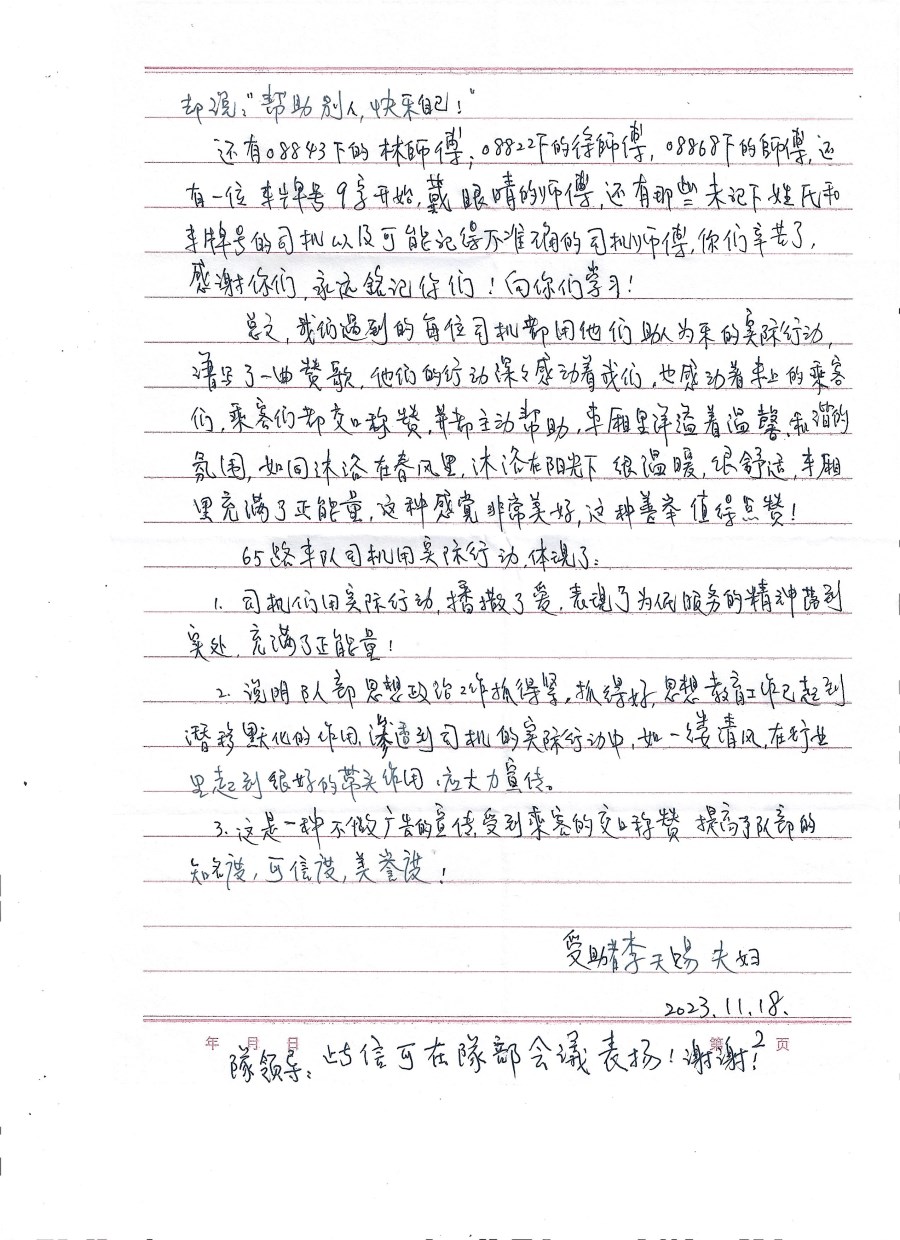 却说："帮助别人,快乐自己！"
还有08843下的林師傅；08822下的徐師傅，08868下的師傅，还
有一位车牌号9字开始,戴眼晴的师傅,还有那些未记下姓氏和
车牌号的司机以及可能记得不准确的司机师傅,你们辛苦了,
感谢你们,永远铭记你们！向你们学习！
总之,我们遇到的每位司机都用他们助人为乐的实际行动,
谱写了一曲赞歌,他们的行动深々感动着我们,也感动着车上的乘客
们,乘客们都交口称赞,并都主动帮助,车厢里洋溢着温馨、和谐的
氛围,如同沐浴在春风里,沐浴在阳光下很温暖,很舒适,车厢
里充满了正能量,这种感觉非常美好,这种善举值得点赞！
65路车队司机用实际行动,体现了:
1. 司机们用实际行动,播撒了爱,表现了为民服务的精神落到
实处,充满了正能量！
2. 说明队部思想政治工作抓得紧,抓得好,思想教育工作已起到
潜移默化的作用,渗透到司机的实际行动中,如一缕清风,在行业
里起到很好的带头作用,应大力宣传。
3. 这是一种不做广告的宣传,受到乘客的交口称赞 提高了队部的
知名度,可信度,美誉度！
受助者李天赐夫妇
2023.11.18.
年 月 日 第 2 页
隊领导：此信可在隊部会議表扬！谢谢！